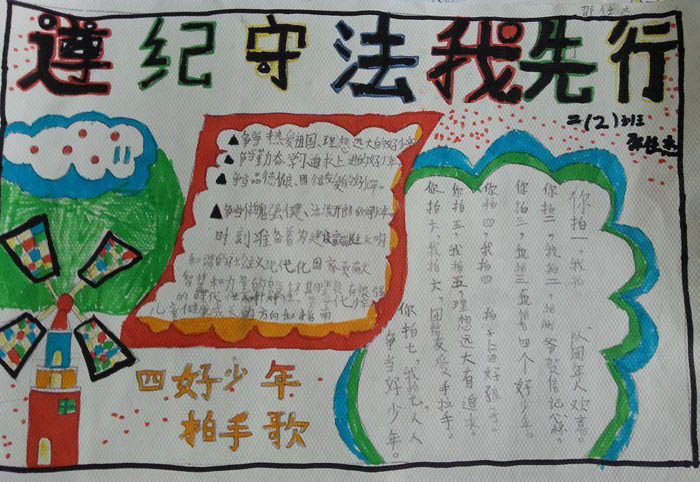 邵任杰
遵纪守法我先行
二(2)班
邵任杰
▲争当热爱祖国、理想远大的好少年
▲争当勤奋学习、追求上进的好少年
▲争当品德优良、团结友爱的好少年。
▲争当体魄强健、活泼开朗的好少年。
时刻准备着为建设富强民主文明
和谐的社会主义现代化国家贡献
智慧和力量
儿童健康成长的方向和指南
四好少年
拍手歌
你拍一,我拍一,队团年人欢喜。
你拍二,我拍二,爷贺信记心。
你拍三,我拍三,我当四个好少年。
你拍四,我拍四,好孩子。
你拍五,我拍五,理想远大有追求。
你拍六,我拍六,团结友爱手拉手。
你拍七,我拍七,人人
争当好少年。